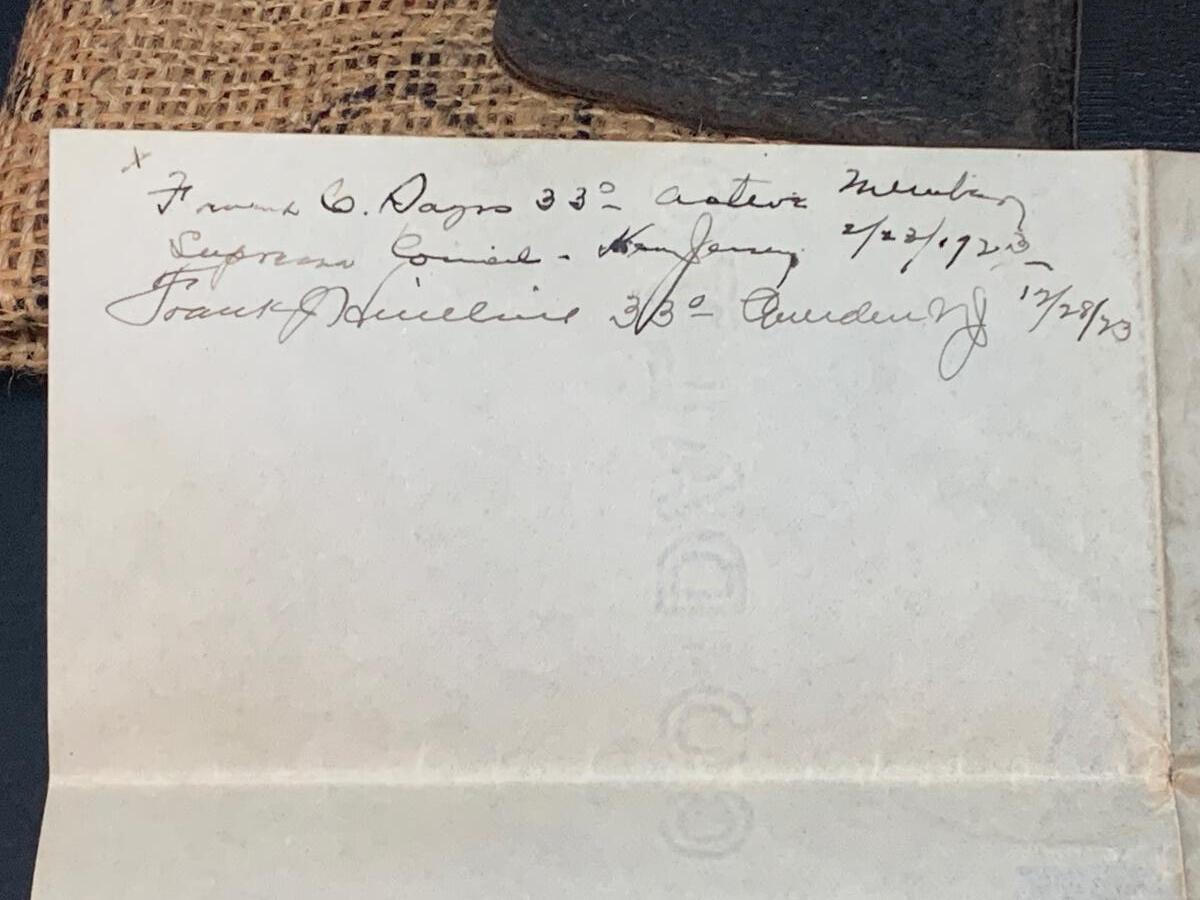 x
C. 33° Active Member
Supreme Council - New Jersey 2/23/1923
Frank J Hineline 33° Camden NJ 12/28/23